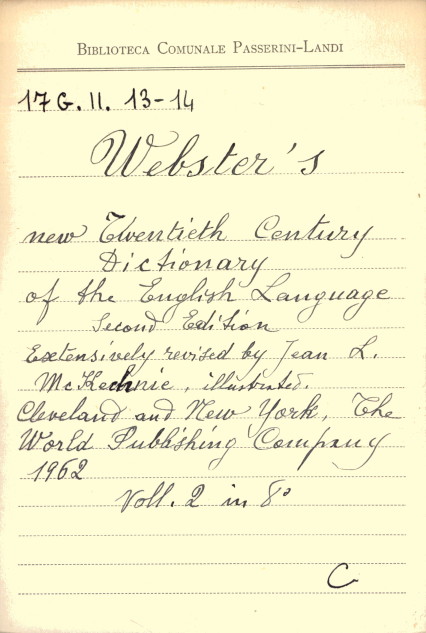 BIBLIOTECA COMUNALE PASSERINI-LANDI
17 G. II. 13-14
Webster's
new Twentieth Century
Dictionary
of the English Language
Second Edition
Extensively revised by Jean L.
McKechnie, illustrated.
Cleveland and New York, The
World Publishing Company
1962
Voll. 2 in 8°
C